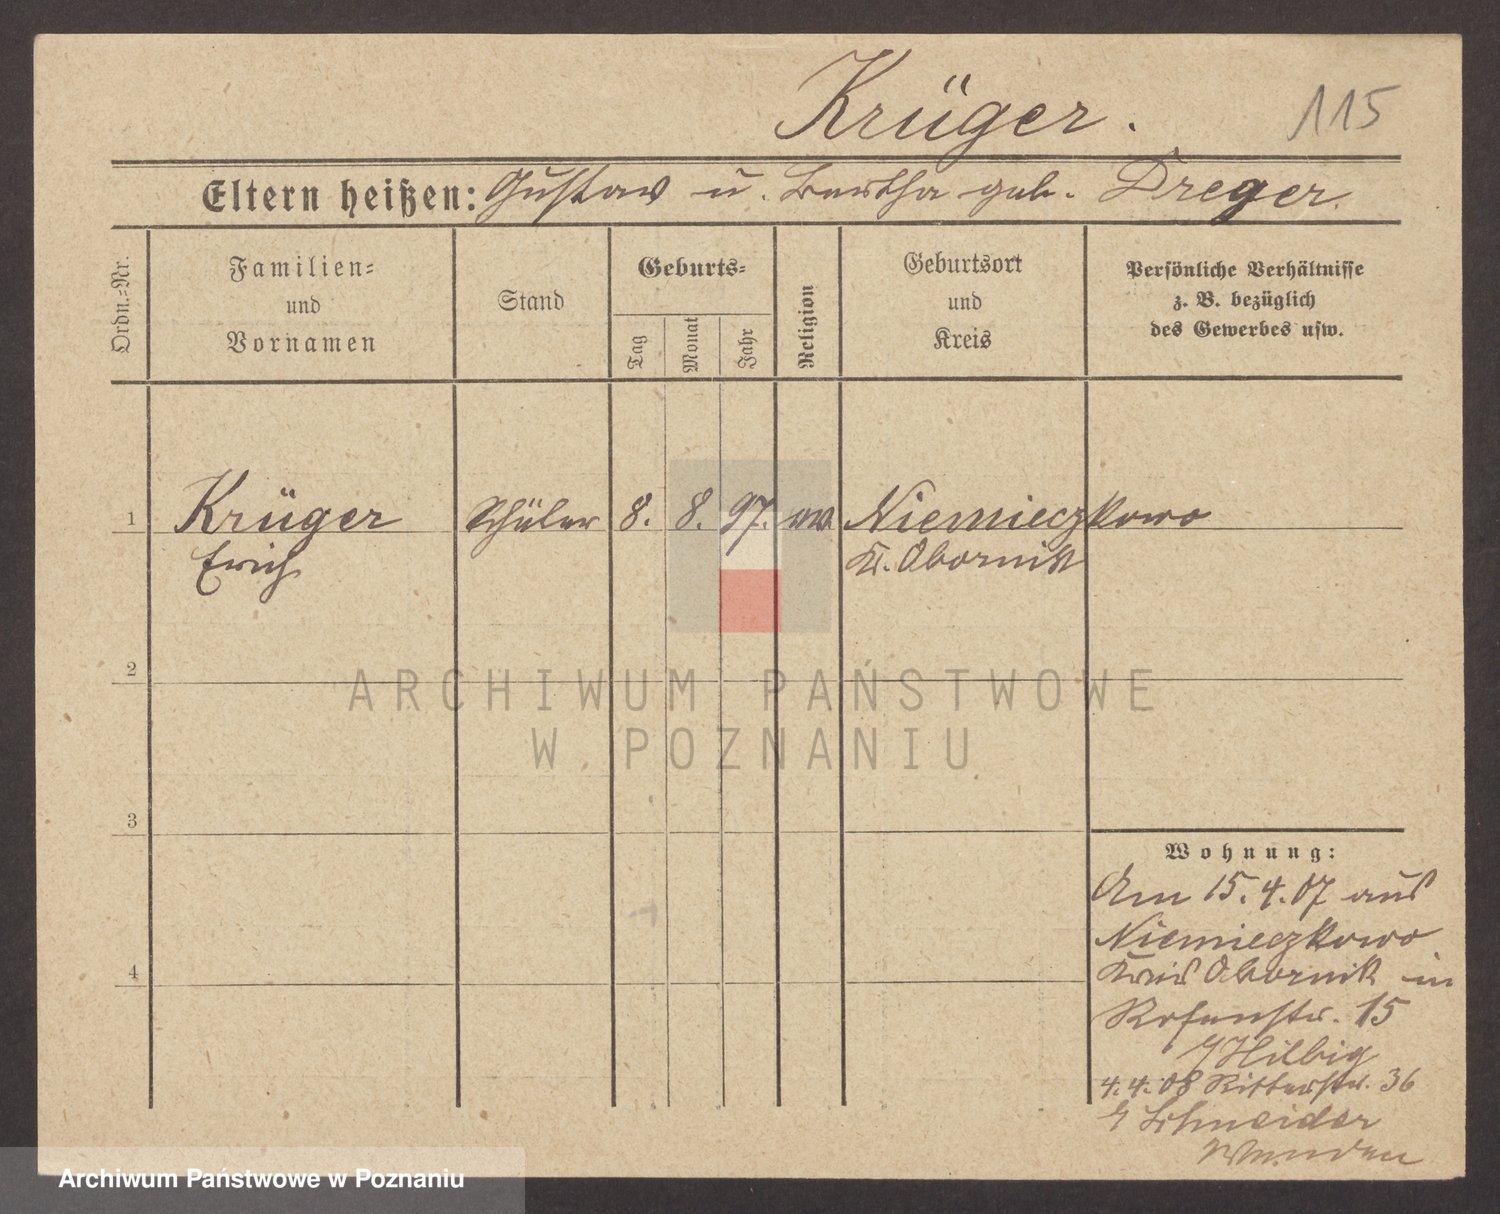 Krüger.
115
Eltern heißen: Gustav u. Bertha geb. Dreger.
Ordn.-Nr.
Familien-
und
Vornamen
Stand
Geburts-
Tag
Monat
Jahr
Religion
Geburtsort
und
Kreis
Persönliche Verhältnisse
z. B. bezüglich
des Gewerbes usw.
1
Krüger
Erich
Schüler
8.
8.
97.
ev.
Niemieczkowo
Kr. Obornik
2
ARCHIWUM PAŃSTWOWE
W POZNANIU
3
4
Wohnung:
Am 15.4.07 aus
Niemieczkowo
Kreis Obornik in
Rosenstr. 15
Hilbig
4.4.08 Ritterstr. 36
Schneider
Archiwum Państwowe w Poznaniu